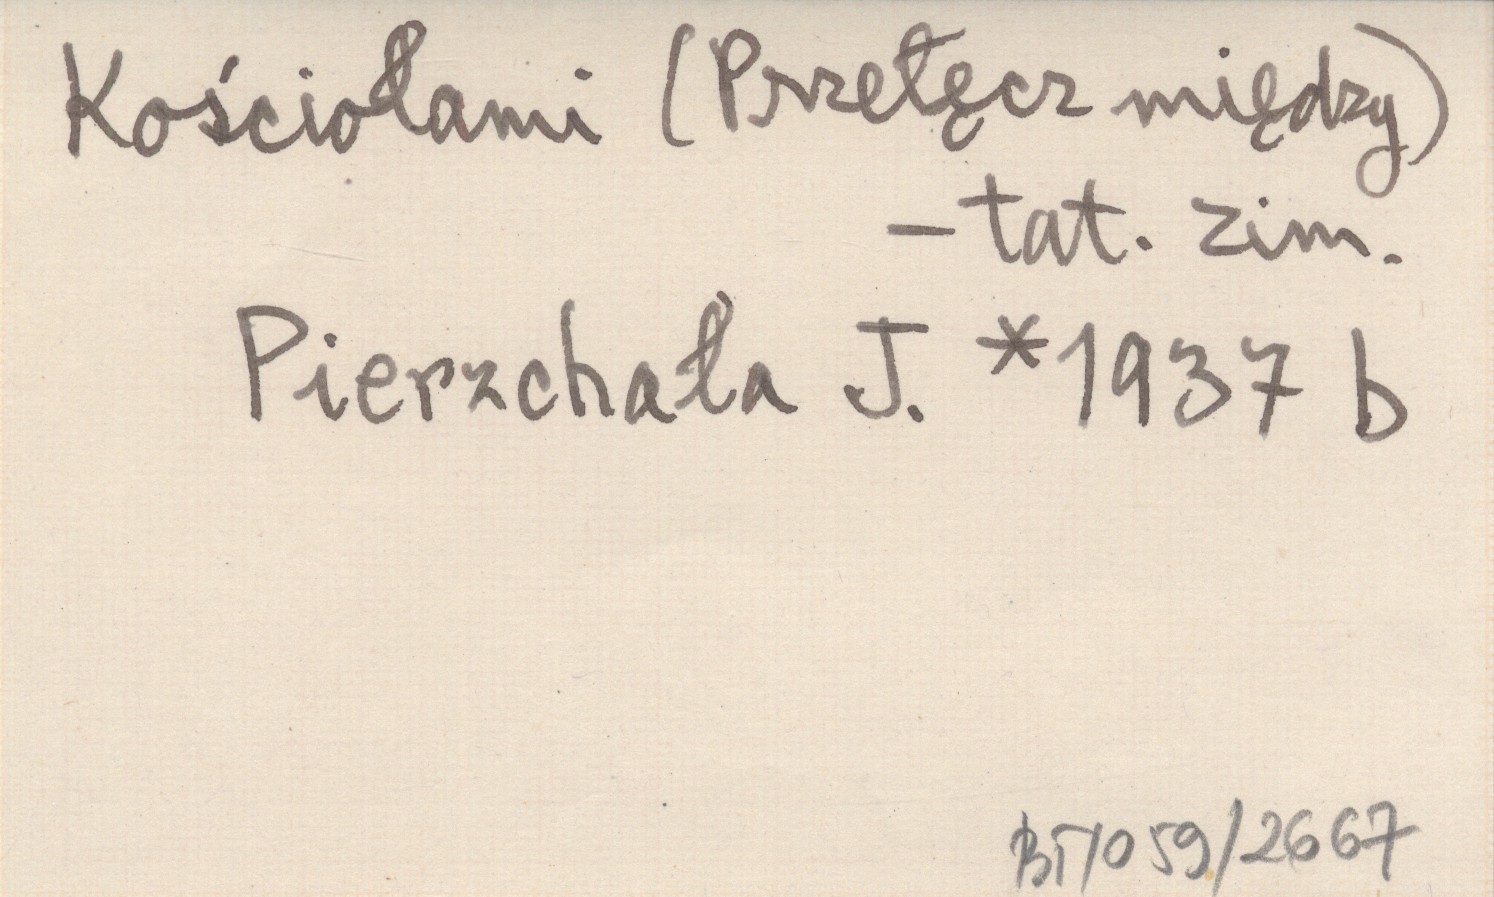 Kościołami (Przełęcz między)
– tat. zim.
Pierzchała J. *1937 b
BT/059/2667